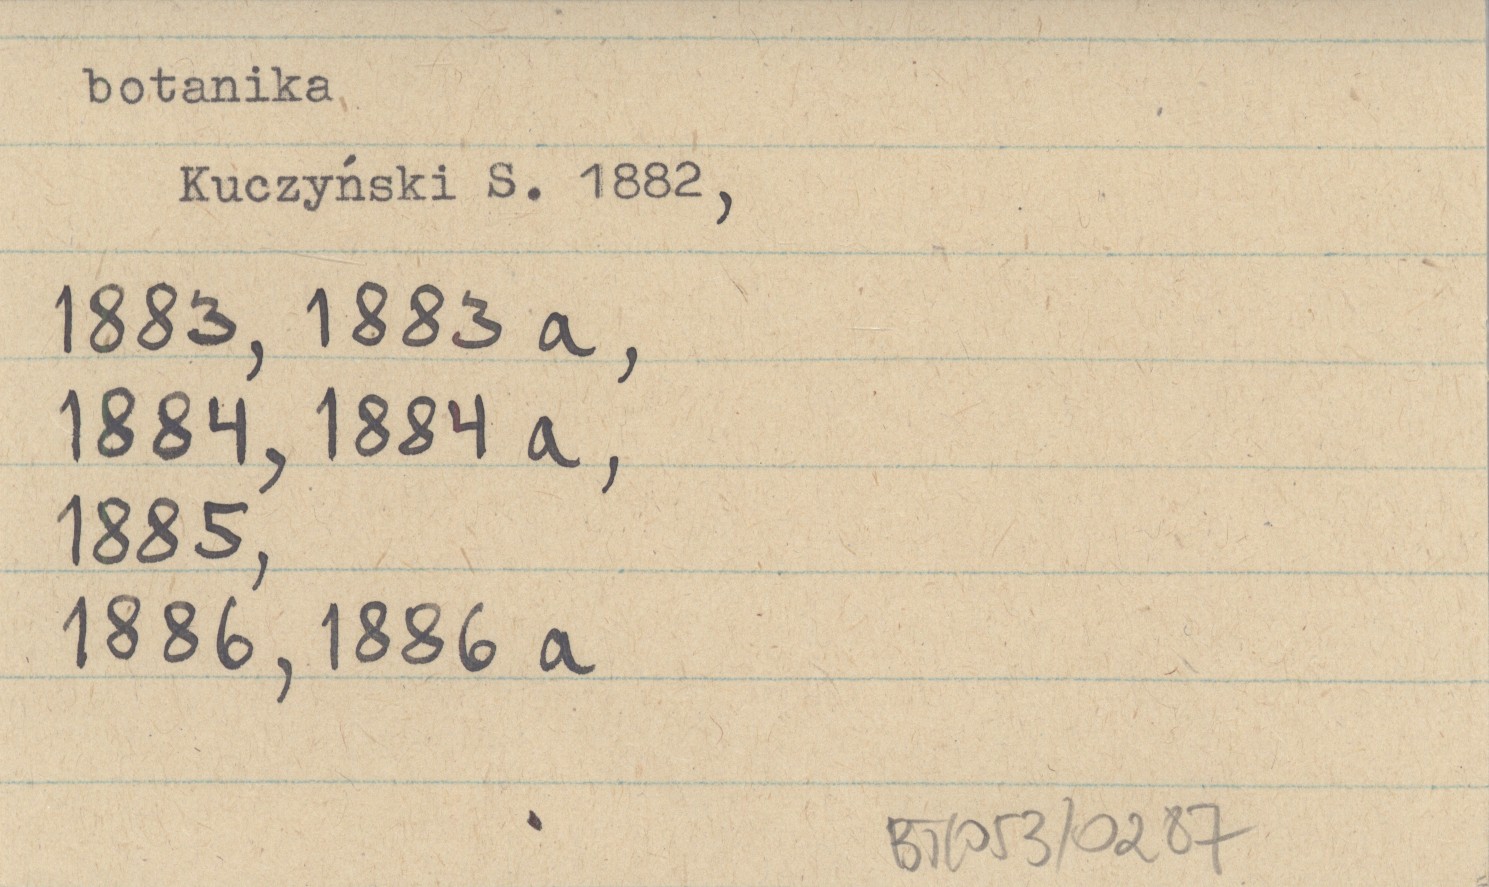 botanika
Kuczyński S. 1882,
1883, 1883 a,
1884, 1884 a,
1885,
1886, 1886 a